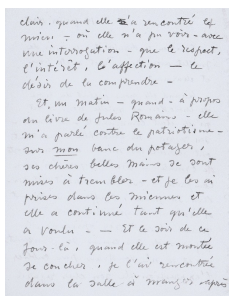 clair, quand elle a rencontré le
mien - où elle n'a pu voir - avec
une interrogation - que le respect,
l'intérêt, l'affection - le
désir de la comprendre -
Et, un matin - quand - à propos
du livre de Jules Romains - elle
m'a parlé contre le patriotisme -
sur mon banc du potager,
ses chères belles mains se sont
mises à trembler - et je les ai
prises dans les miennes et
elle a continué tant qu'elle
a voulu - - Et le soir de ce
jour-là, quand elle est montée
se coucher, je l'ai rencontrée
dans la salle à manger - après